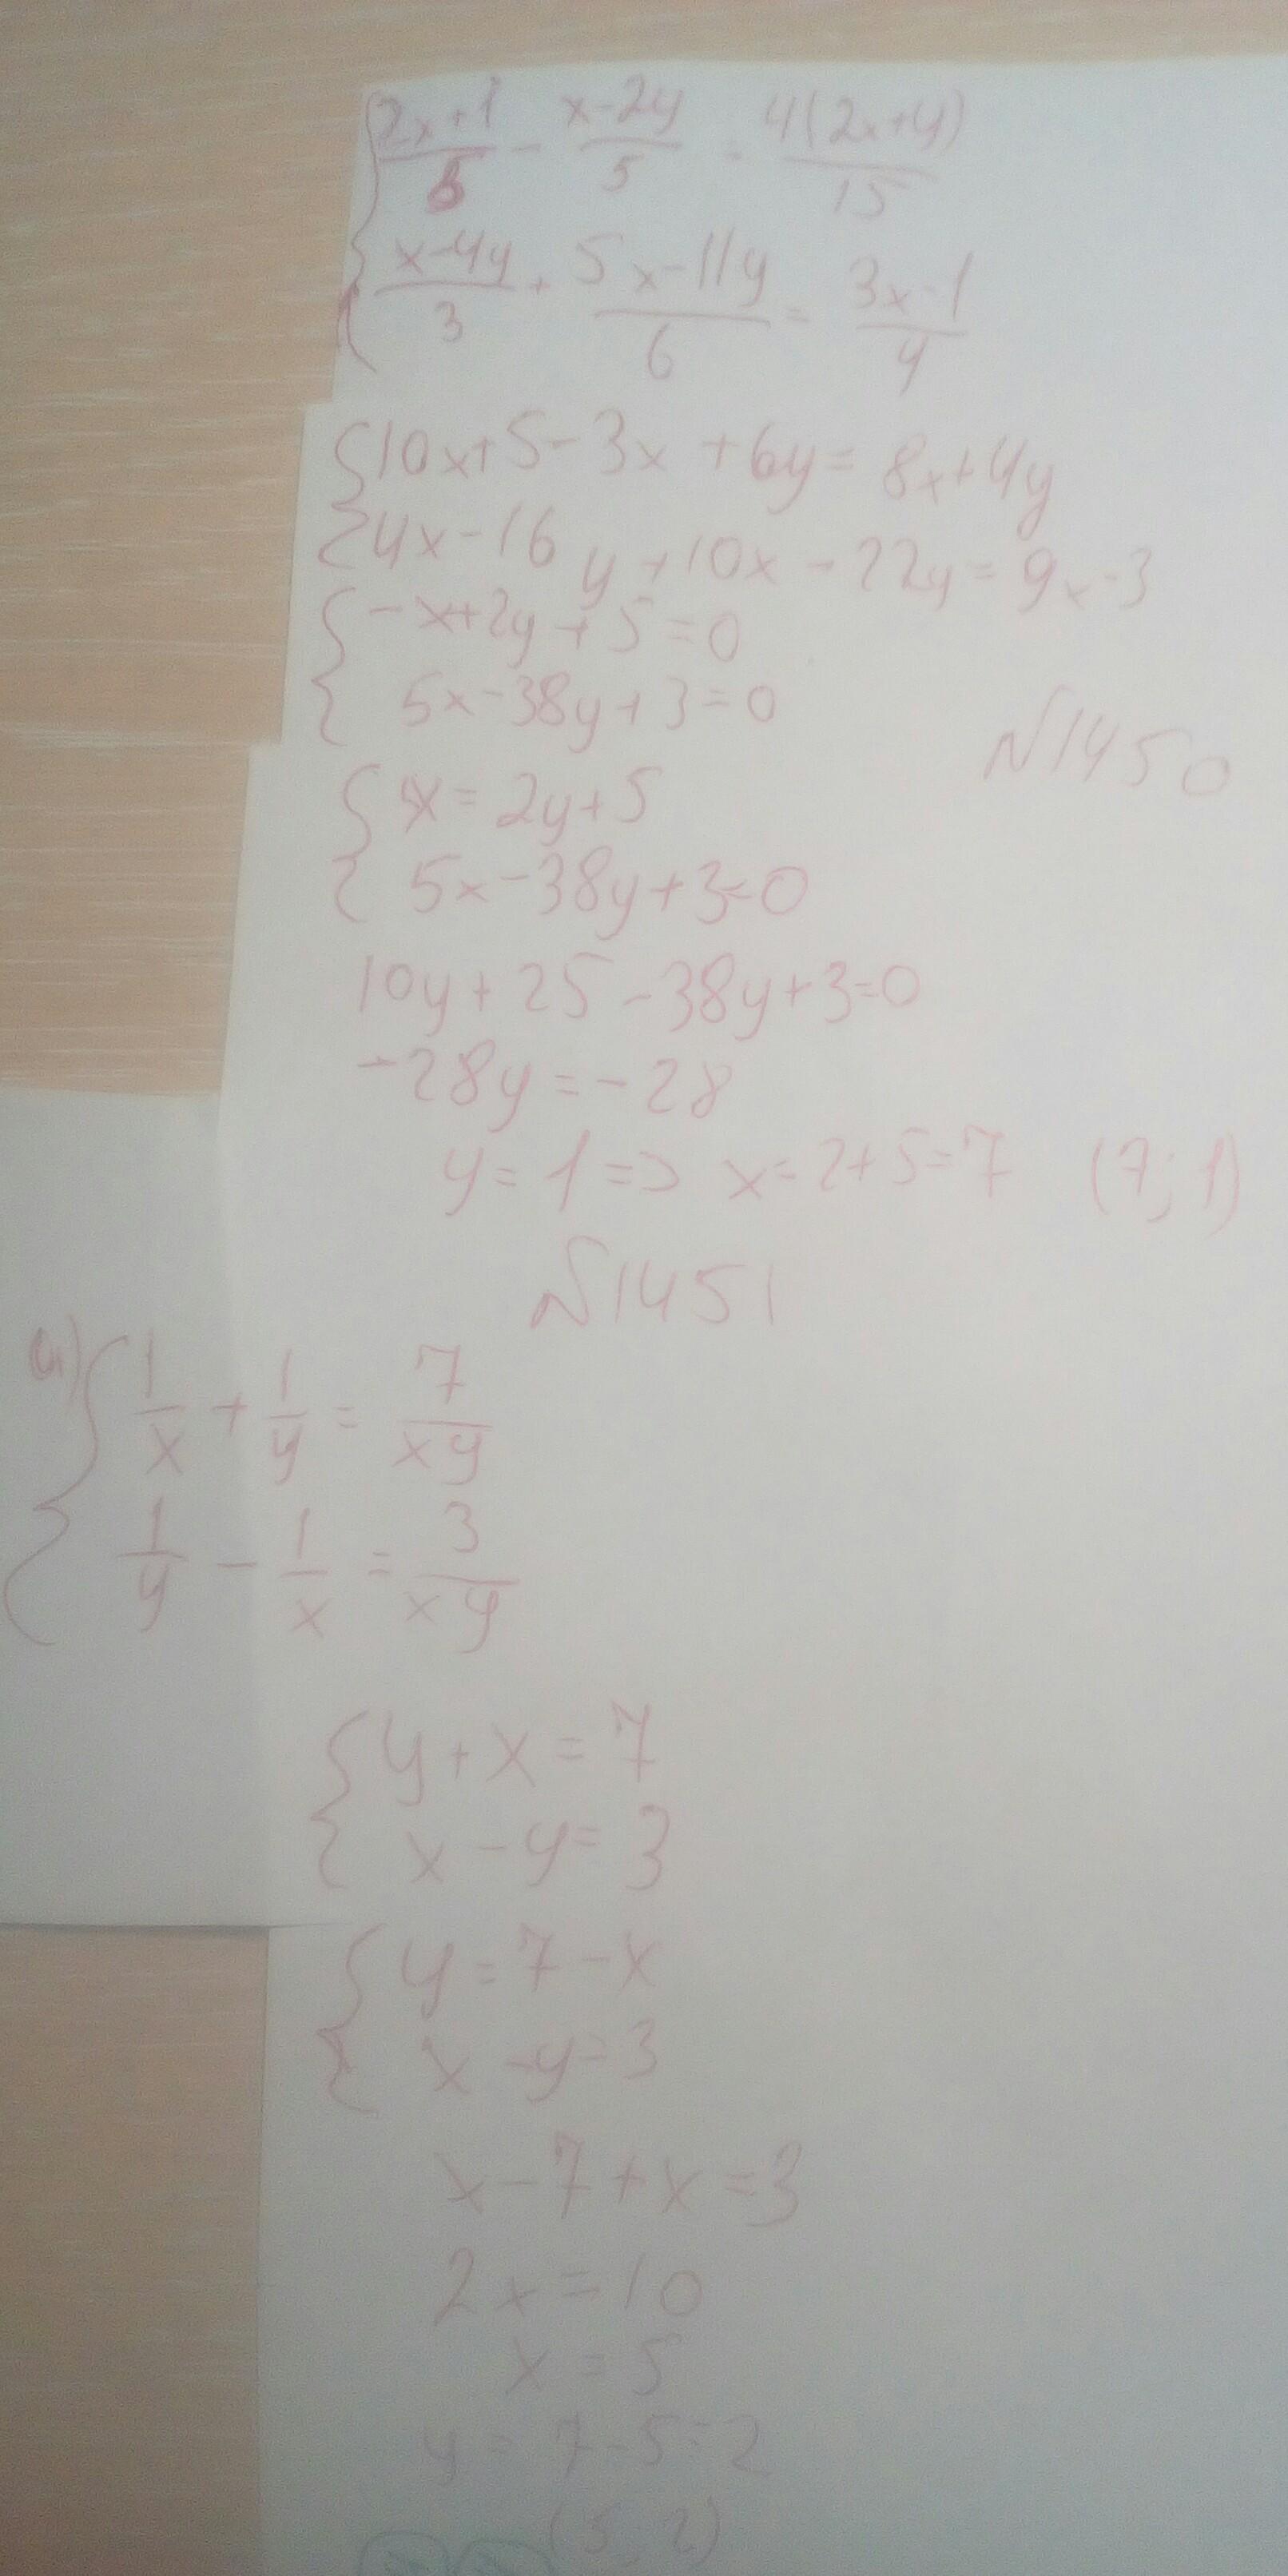 { (2x+1)/3 - (x-2y)/5 = 4(2x+y)/15
(x-4y)/3 + (5x-11y)/6 = (3x-1)/4
{ 10x+5-3x+6y=8x+4y
4x-16y+10x-22y=9x-3
{ -x+2y+5=0
5x-38y+3=0
N1450
{ x=2y+5
5x-38y+3=0
10y+25-38y+3=0
-28y=-28
y=1=> x=2+5=7 (7; 1)
N1451
a) { 1/x + 1/y = 7/xy
1/y - 1/x = 3/xy
{ y+x=7
x-y=3
{ y=7-x
x-y=3
x-7+x=3
2x=10
x=5
y=7-5=2
(5, 2)